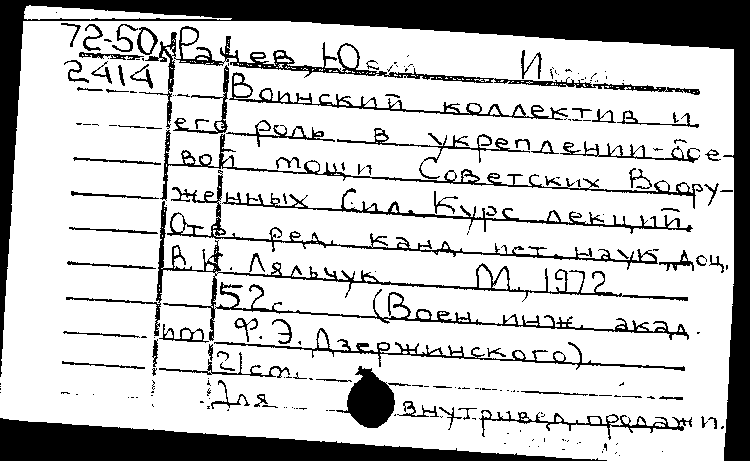 72-50к Рачев, Юлий И
2414 Воинский коллектив и
его роль в укреплении бое-
вой мощи Советских Воору-
женных Сил. Курс лекций.
Отв. ред. канд. ист. наук, доц.
В.К. Ляльчук М., 1972
52 с. (Воен. инж. акад.
им Ф.Э. Дзержинского).
21 см.
Для внутривед. продажи.